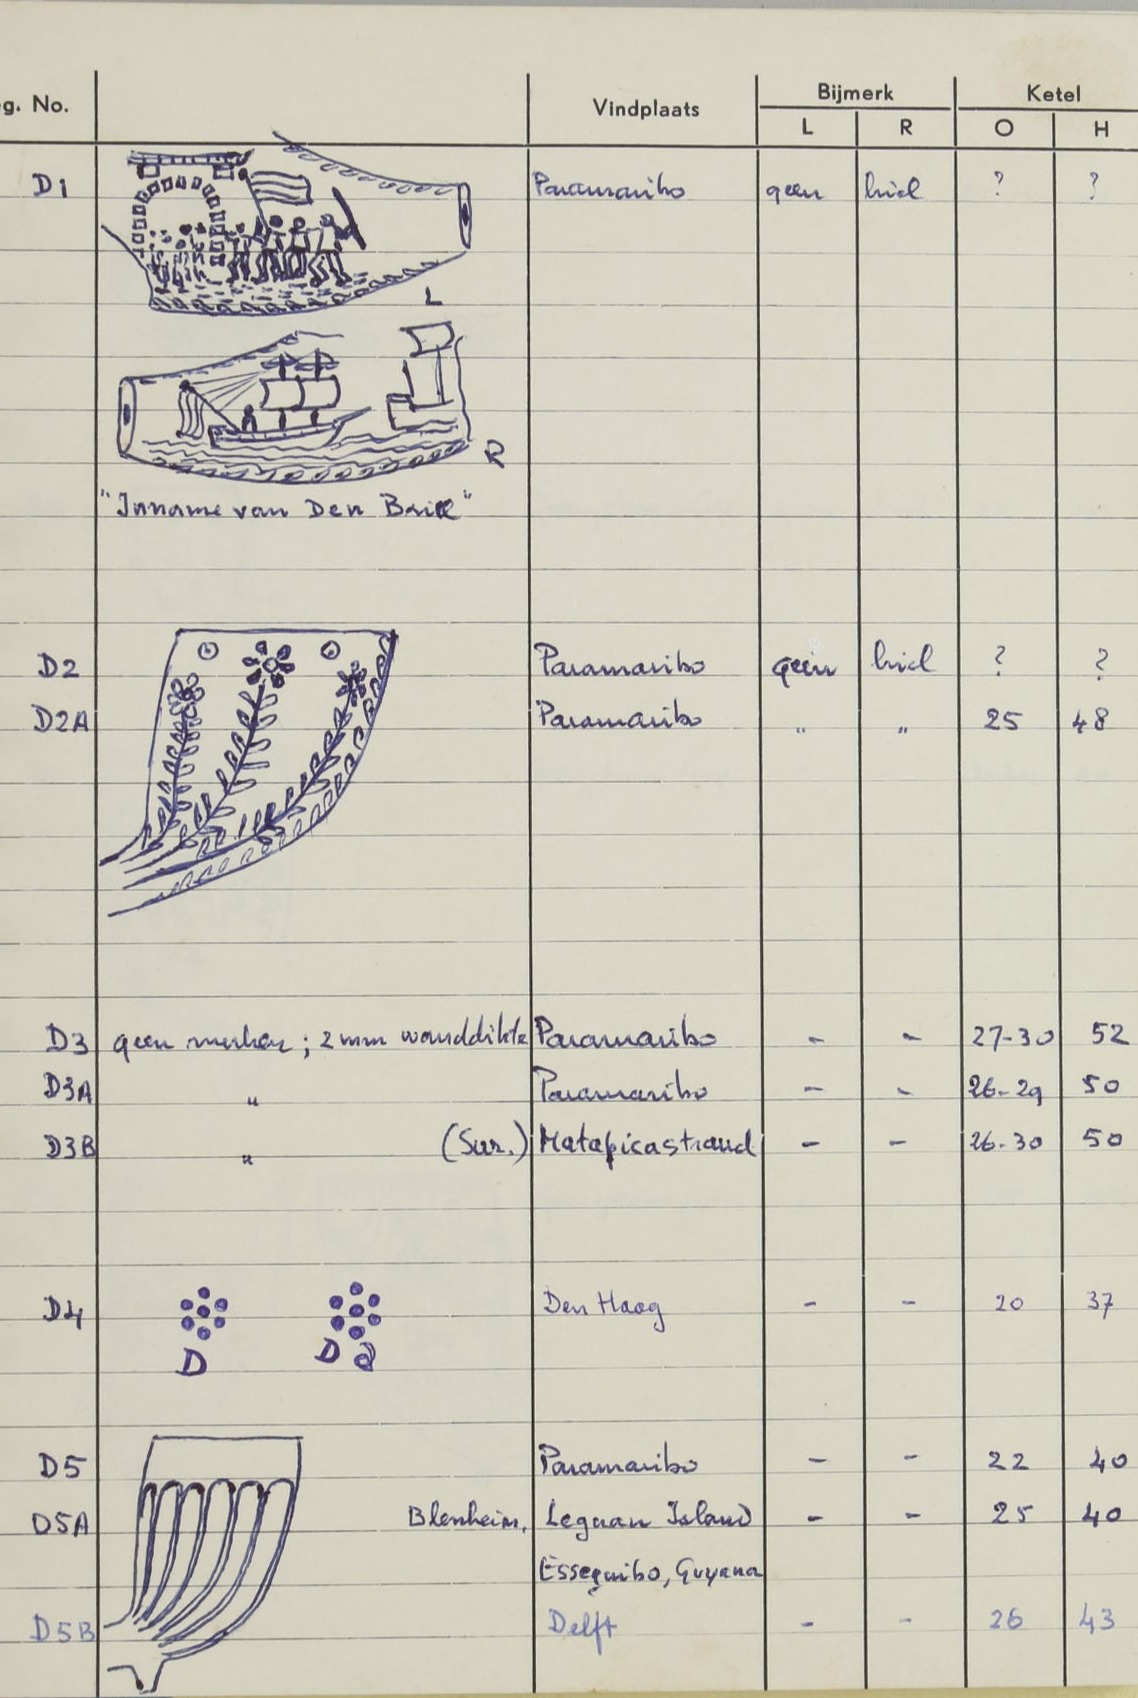 g. No. Vindplaats Bijmerk Ketel
L R O H
D1 Paramaribo geen hiel ? ?
L
R
"Inname van Den Briel"
D2 Paramaribo geen hiel ? ?
D2A Paramaribo " " 25 48
D3 geen merken; 2 mm wanddikte Paramaribo - - 27-30 52
D3A " Paramaribo - - 26-29 50
D3B " (Sur.) Matapicastrand - - 26-30 50
D4 Den Haag - - 20 37
D D
D5 Paramaribo - - 22 40
D5A Blenheim, Leguan Island - - 25 40
Essequibo, Guyana
D5B Delft - - 26 43